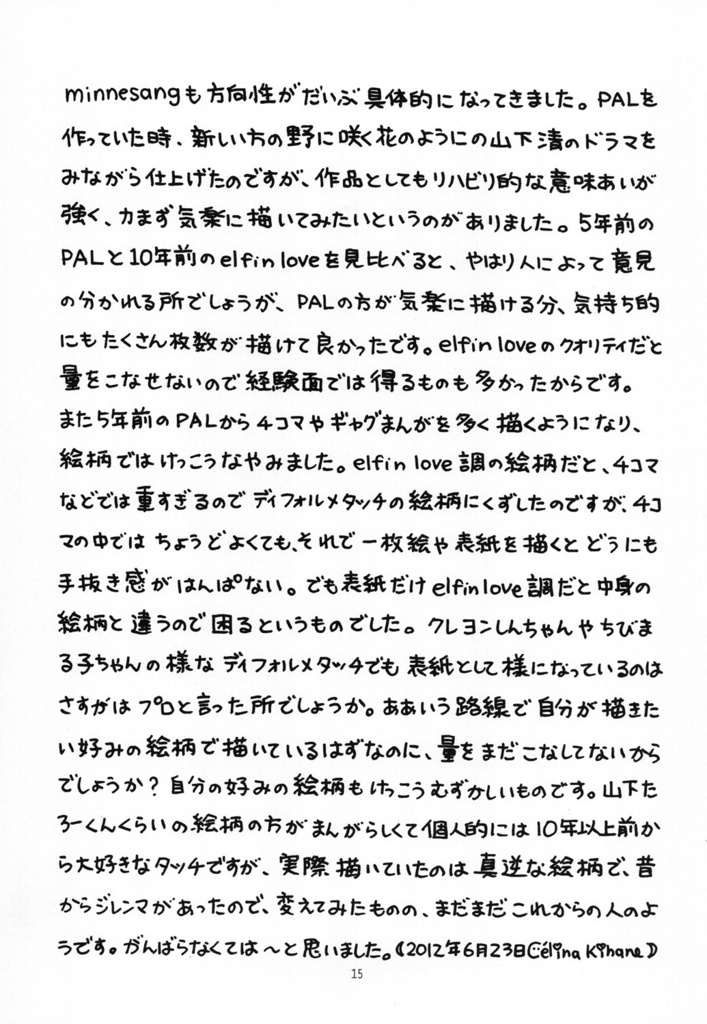 minnesangも方向性がだいぶ具体的になってきました。PALを
作っていた時、新しい方の野に咲く花のようにの山下清のドラマを
みながら仕上げたのですが、作品としてもリハビリ的な意味あいが
強く、力まず気楽に描いてみたいというのがありました。5年前の
PALと10年前のelfin loveを見比べると、やはり人によって意見
の分かれる所でしょうが、PALの方が気楽に描ける分、気持ち的
にもたくさん枚数が描けて良かったです。elfin loveのクオリティだと
量をこなせないので経験面では得るものも多かったからです。
また5年前のPALから4コマやギャグまんがを多く描くようになり、
絵柄ではけっこうなやみました。elfin love調の絵柄だと、4コマ
などでは重すぎるのでディフォルメタッチの絵柄にくずしたのですが、4コ
マの中ではちょうどよくても、それで一枚絵や表紙を描くとどうにも
手抜き感がはんぱない。でも表紙だけelfin love調だと中身の
絵柄と違うので困るというものでした。クレヨンしんちゃんやちびま
る子ちゃんの様なディフォルメタッチでも表紙として様になっているのは
さすがはプロと言った所でしょうか。ああいう路線で自分が描きた
い好みの絵柄で描いているはずなのに、量をまだこなしてないから
でしょうか?自分の好みの絵柄もけっこうむずかしいものです。山下た
ろーくんくらいの絵柄の方がまんがらしくて個人的には10年以上前か
ら大好きなタッチですが、実際描いていたのは真逆な絵柄で、昔
からジレンマがあったので、変えてみたものの、まだまだこれからの人のよ
うです。がんばらなくては〜と思いました。《2012年6月23日Célina Kihane》
15